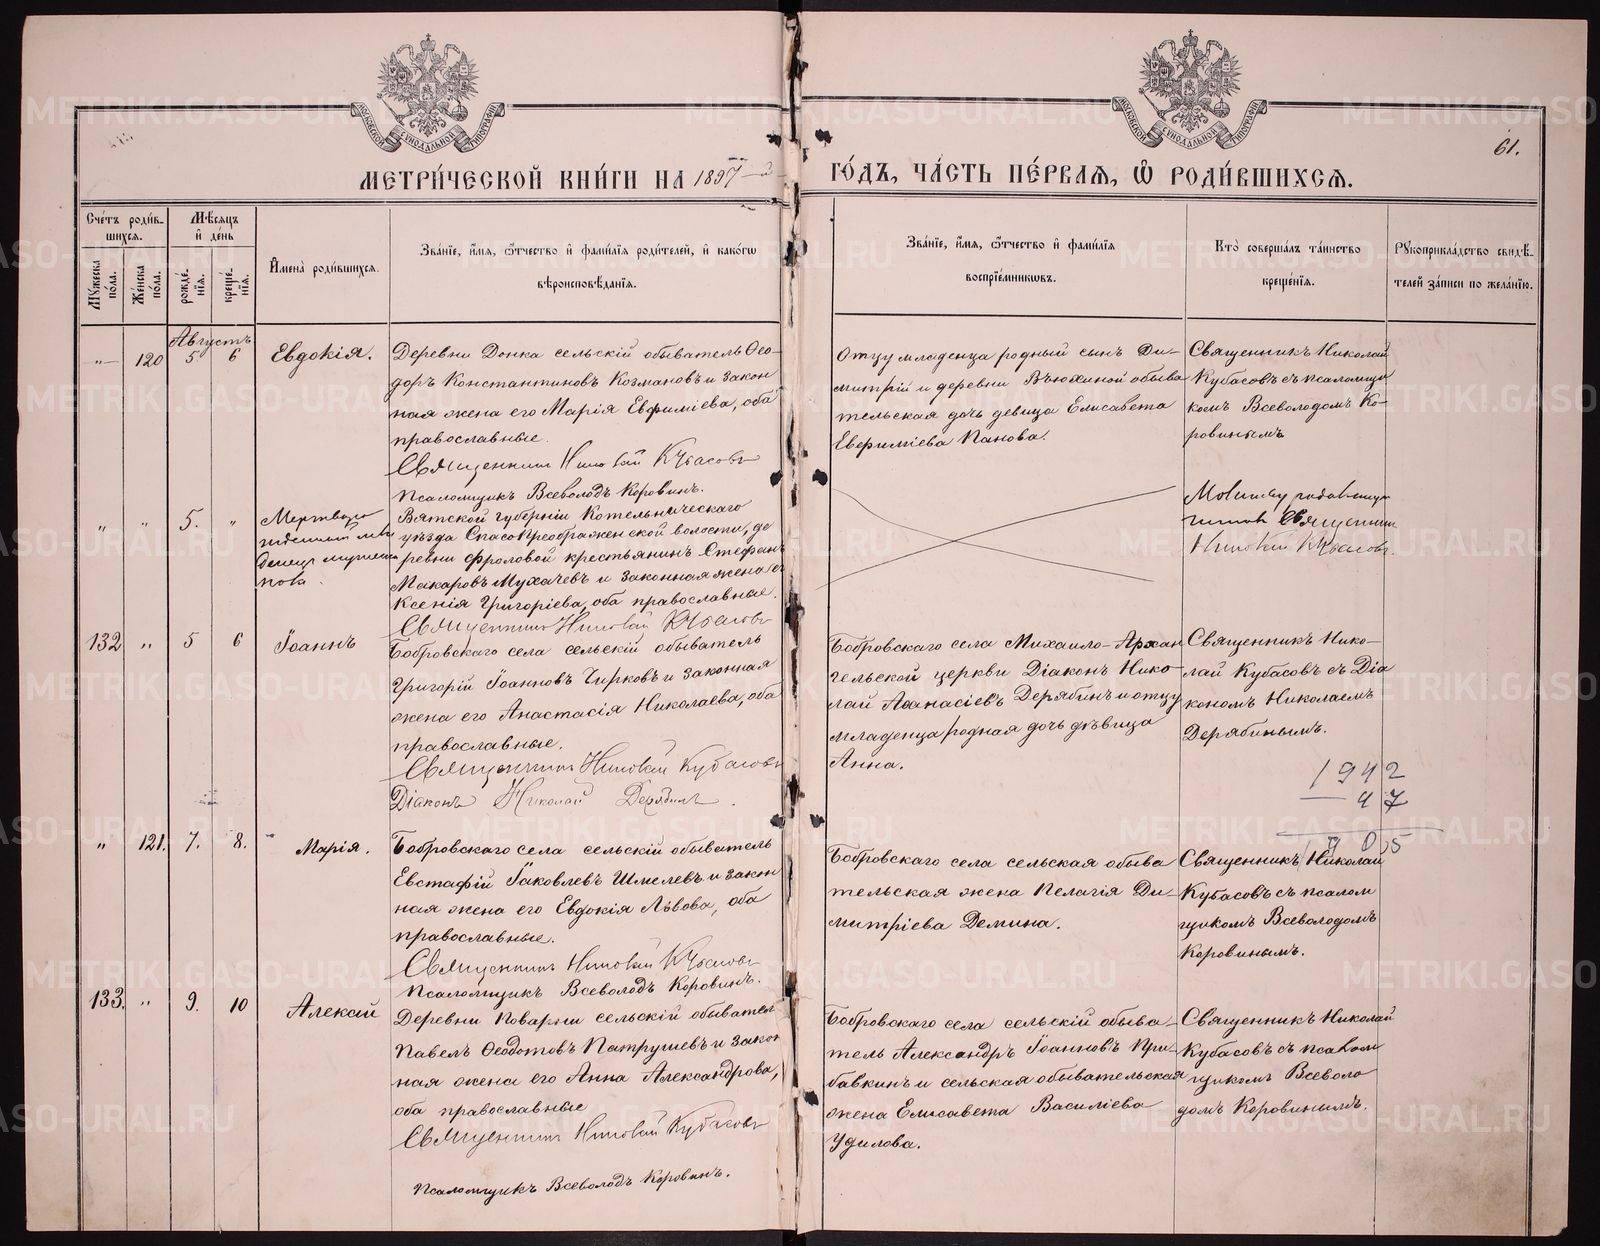 61.
МЕТРИ́ЧЕСКОЙ КНИ́ГИ НА 1897
ГО́ДЪ, ЧА́СТЬ ПЕ́РВАЯ, Ѡ РОДИ́ВШИХСЯ.
Сче́тъ роди́в-
шихся.
Мꙋ́жеска по́ла.
Же́нска по́ла.
Мѣ́сяцъ
и҆ де́нь
рожде́нїя.
креще́нїя.
И҆мена̀ роди́вшихся.
Зва́нїе, и҆́мя, ѻ҆́тчество и҆ фами́лїя роди́телей, и҆ како́гѡ
вѣроисповѣ́данїя.
Зва́нїе, и҆́мя, ѻ҆́тчество и҆ фами́лїя
воспрїе́мниковъ.
Кто̀ соверша́лъ та́инство
креще́нїя.
Рꙋкоприкла́дство свидѣ́-
телей за́писи по жела́нїю.
Августъ
„— 120 5 6 Евдокія.
Деревни Донка сельскій обыватель Ѳео-
доръ Константиновъ Козмановъ и закон
ная жена его Марія Евфиміева, оба
православные.
Священникъ Николай Кубасовъ
Псаломщикъ Всеволодъ Коровинъ.
Отцу младенца родный сынъ Ди-
митрій и деревни Вьюхиной обыва
тельская дочь девица Елисавета
Евфиміева Панова.
Священникъ Николай
Кубасовъ съ псаломщи
комъ Всеволодомъ Ко-
ровинымъ
„ „ 5. „
Мертворо
жденный мла
денецъ мужеска
пола.
Вятской губерніи Котельническаго
уѣзда Спасо Преображенской волости, де
ревни Фроловой крестьянинъ Стефанъ
Макаровъ Мухачевъ и законная жена ег
Ксенія Григоріева, оба православные.
Священникъ Николай Кубасовъ
Молитву
Священник
Николай Кубасовъ
132 „ 5 6 Іоаннъ
Бобровскаго села сельскій обыватель
Григорій Іоанновъ Чирковъ и законная
жена его Анастасія Николаева, оба
православные.
Священникъ Николай Кубасовъ
Діаконъ Николай Дерябинъ.
Бобровскаго села Михаило-Архан
гельской церкви Діаконъ Нико-
лай Аѳанасіевъ Дерябинъ и отцу
младенца родная дочь дѣвица
Анна.
Священникъ Нико-
лай Кубасовъ съ Діа
кономъ Николаемъ
Дерябинымъ.
1942
— 47
„ 121. 7. 8. Марія.
Бобровскаго села сельскій обыватель
Евстафій Іаковлевъ Шмелевъ и закон
ная жена его Евдокія Львова, оба
православные.
Священникъ Николай Кубасовъ
Псаломщикъ Всеволодъ Коровинъ.
Бобровскаго села сельская обыва
тельская жена Пелагія Ди-
митріева Демина.
Священникъ Николай
Кубасовъ съ псалом
щикомъ Всеволодомъ
Коровинымъ.
133. „ 9. 10 Алексій
Деревни Поварни сельскій обывател
Павелъ Ѳеодотовъ Патрушевъ и закон
ная жена его Анна Александрова,
оба православные
Священникъ Николай Кубасовъ
Псаломщикъ Всеволодъ Коровинъ.
Бобровскаго села сельскій обыва-
тель Александръ Іоанновъ При-
бавкинъ и сельская обывательская
жена Елисавета Василіева
Удилова.
Священникъ Николай
Кубасовъ съ псалом
щикомъ Всеволо
домъ Коровинымъ.
METRIKI.GASO-URAL.RU